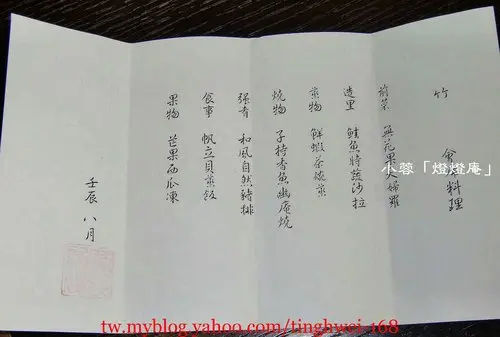 竹 會席料理
前菜 無花果天婦羅
造里 鮭魚時蔬沙拉
蒸物 鮮蝦茶碗蒸
燒物 子持香魚幽庵燒
強肴 和風自然豬排
食事 帆立貝蒸飯
果物 芒果西瓜凍
壬辰 八月
小蓉「燈燈庵」
tw.myblog.yahoo.com/tinghwei-168